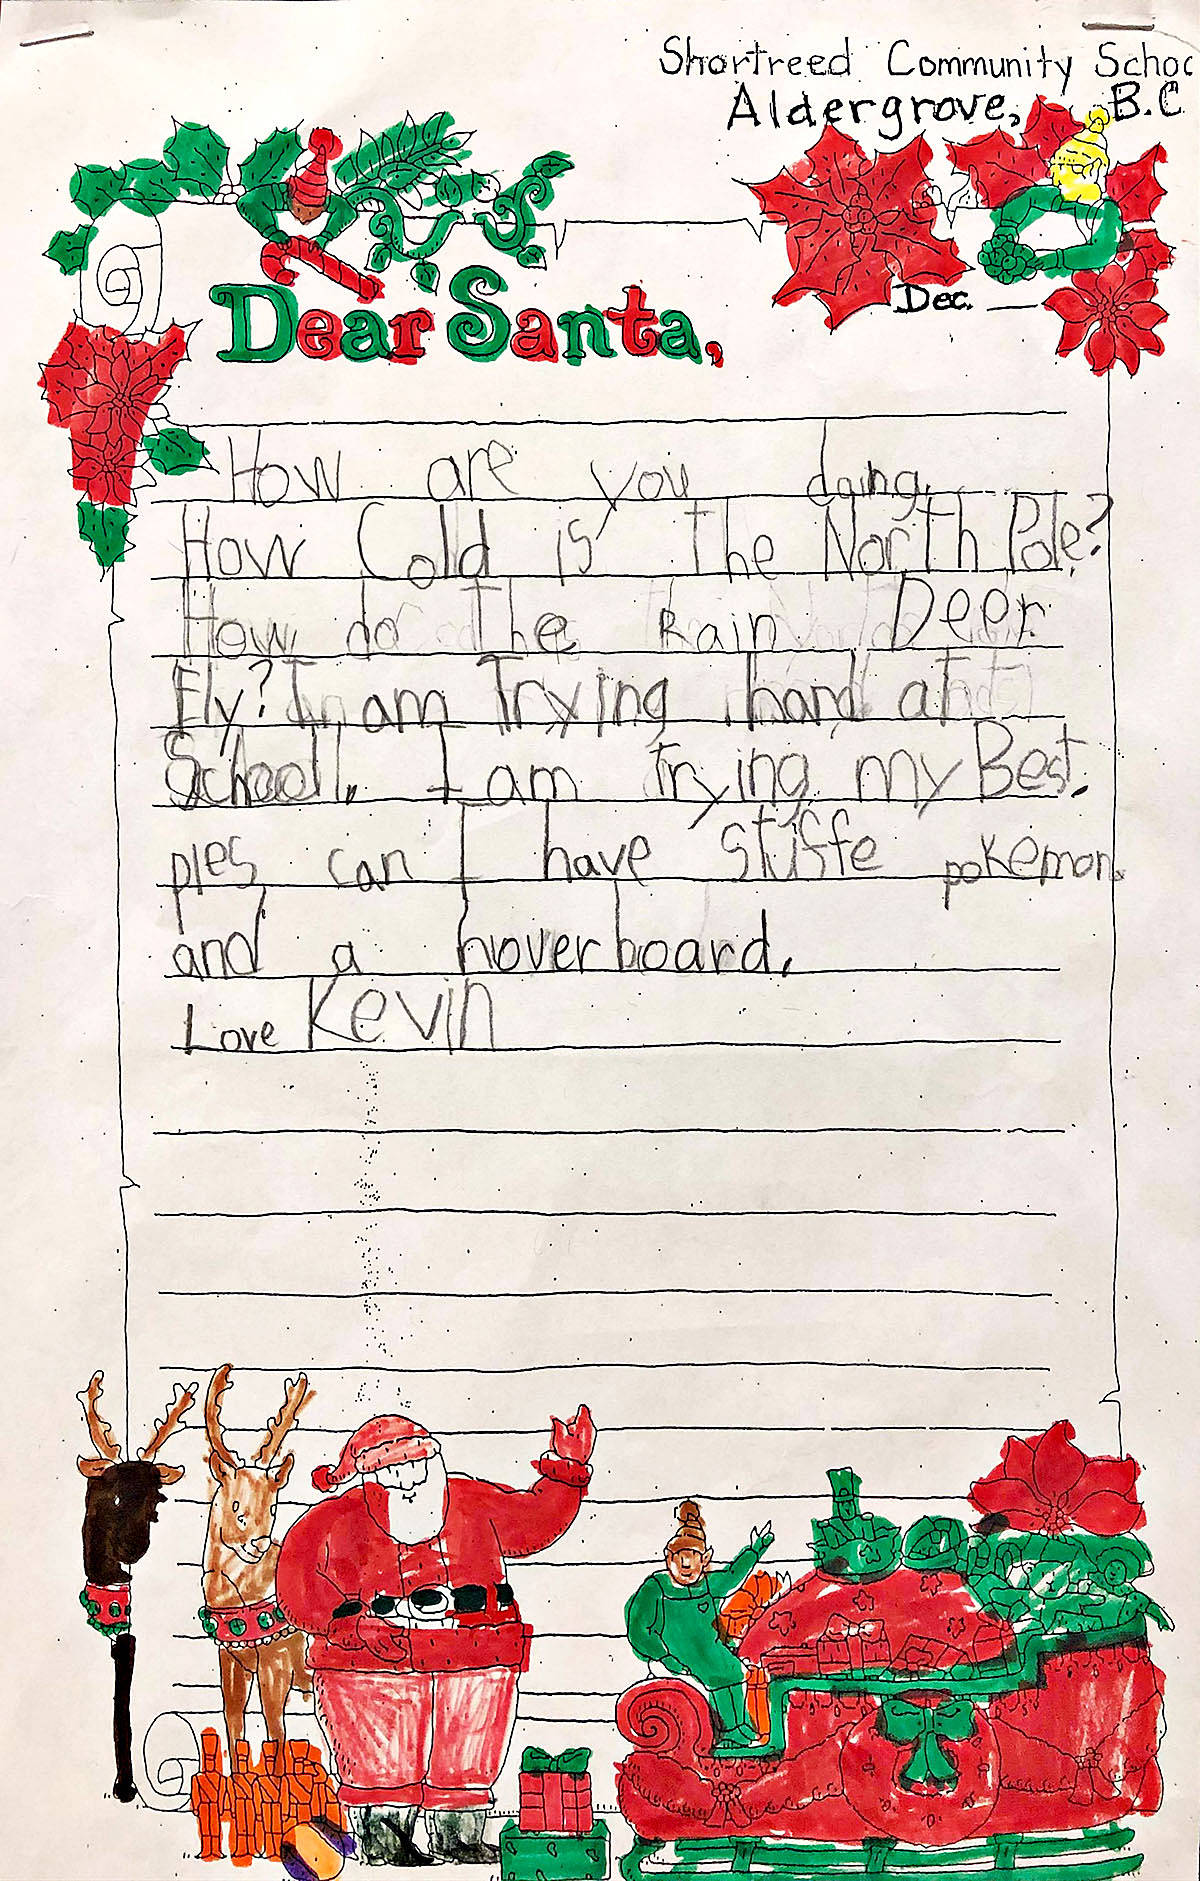 Shortreed Community Schoo
Aldergrove, B.C
Dec.
Dear Santa,
How are you doing.
How Cold is The North Pole?
How do The Rain Deer
Fly? I am Trying hard at
School. I am Trying my Best.
ples can I have stuffe pokemon.
and a hoverboard.
Love Kevin